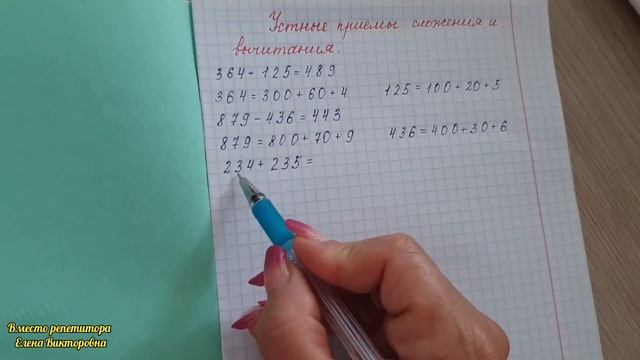 Устные приемы сложения и
вычитания.
364 + 125 = 489
364 = 300 + 60 + 4 125 = 100 + 20 + 5
879 - 436 = 443
879 = 800 + 70 + 9 436 = 400 + 30 + 6
234 + 235 =
Вместо репетитора
Елена Викторовна